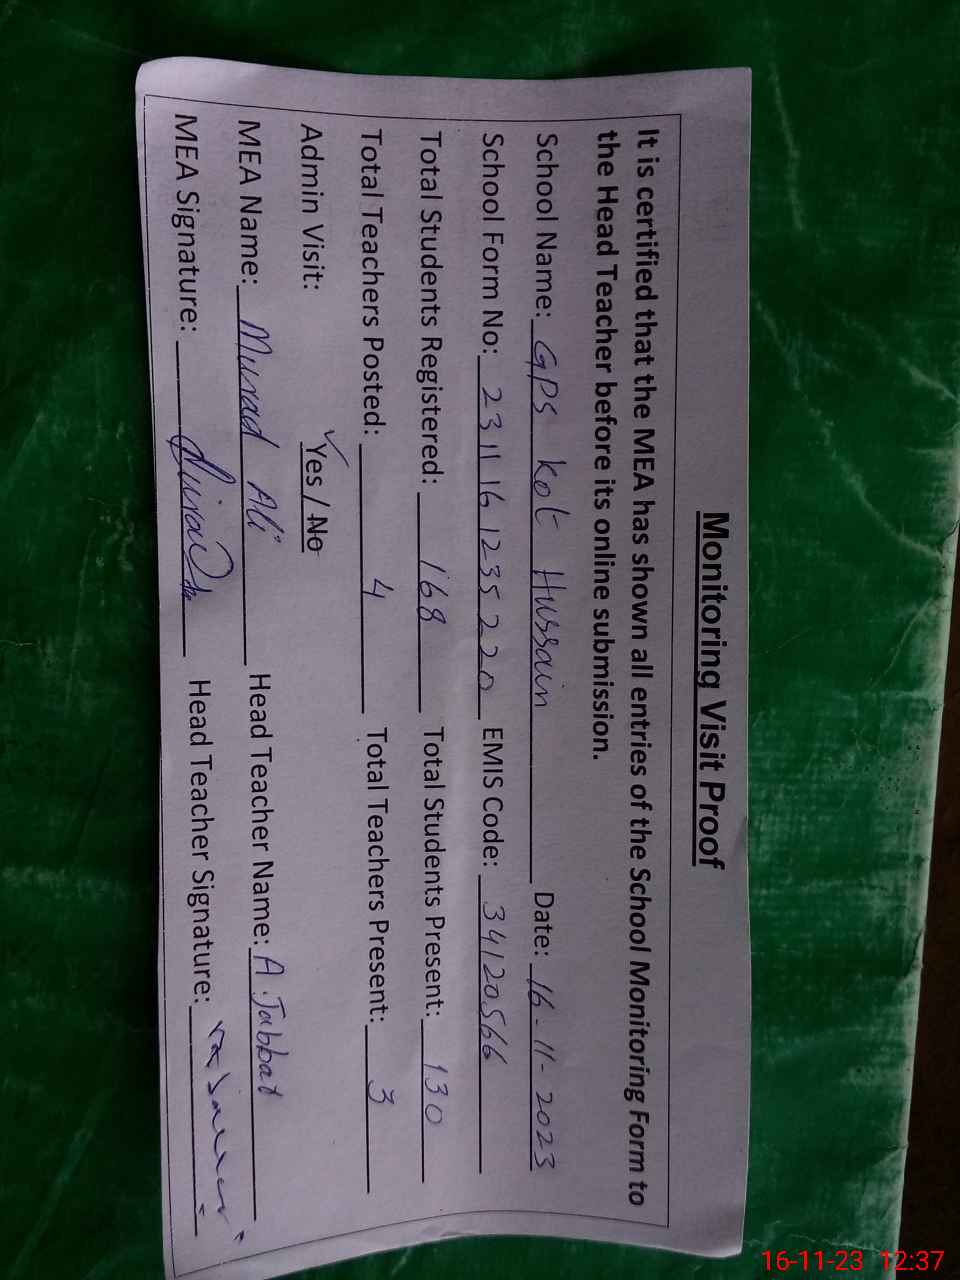 Monitoring Visit Proof
It is certified that the MEA has shown all entries of the School Monitoring Form to
the Head Teacher before its online submission.
School Name: GPS Kot Hussain Date: 16-11-2023
School Form No: 2311161235220 EMIS Code: 34120566
Total Students Registered: 168 Total Students Present: 130
Total Teachers Posted: 4 Total Teachers Present: 3
Admin Visit: Yes / No
MEA Name: Murad Ali Head Teacher Name: A. Jabbar
MEA Signature: Head Teacher Signature:
16-11-23 12:37